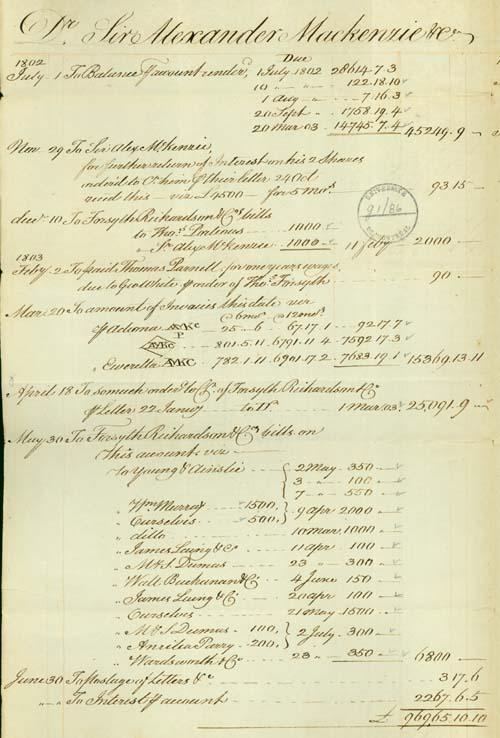 Dr. Sir Alexander Mackenzie & Co
1802 Due
July 1 To Balance of account render'd 1 July 1802 28614.7.3
10 " " 122.18.10
1 Aug " 7.16.3
20 Sept " 1758.19.4
20 Mar 03 14745.7.4 45249.9 —
Nov. 29 To Sir Alex McKenzie,
for further return of Interest on his 2 Shares
order'd to Cr. him, p their letter 24 Oct
receed this — viz £4500 for 5 Mos. 93 15 —
UNIVERSITÉ
91/86
DE MONTRÉAL
decr. 10 To Forsyth Richardson & Co's bills
to Thos. Porteous 1000
" Sr. Alex McKenzie 1000 11 feby 2000 —
1803
Feby. 2 To paid Thomas Parnell for one years wages,
due to Geo White p order of Thos. Forsyth 90 —
Mar. 20 To amount of Invoices this date viz
@ 6 mos. @ 12 mos.
p Adiona 25..6 67.17.1 92.17.7
801.5.11 6791.11.4 7592.17.3
" Everetta 782.1.11 6901.17.2 7683.19.1 15369.13.11
April 18 To so much order'd to Cr. of Forsyth Richardson & Co
p letter 22 Janry 1 Mar 03 25,091.9 —
May 30 To Forsyth Richardson & Co's bills on
this account viz
to Young & Ainslie 2 May 350
3 " 100
7 " 550
" Wm. Murray 1500, } 9 apr 2000
" Ourselves 500, }
" ditto 10 mar 1000
" James Laing & Co 11 apr 100
" M & S. Dumas 23 " 300
" Walt. Buchanan & Co 4 June 150
" James Laing & Co 20 apr 100
" Ourselves 21 May 1500
" M & S Dumas 100, } 2 July 300
" Parry 200, }
" Wardsworth & Co 23 " 350 6800 —
June 30 To Postage of Letters &c 3 17.6
" " To Interest p account 2267.6.5
£ 96965.10.10